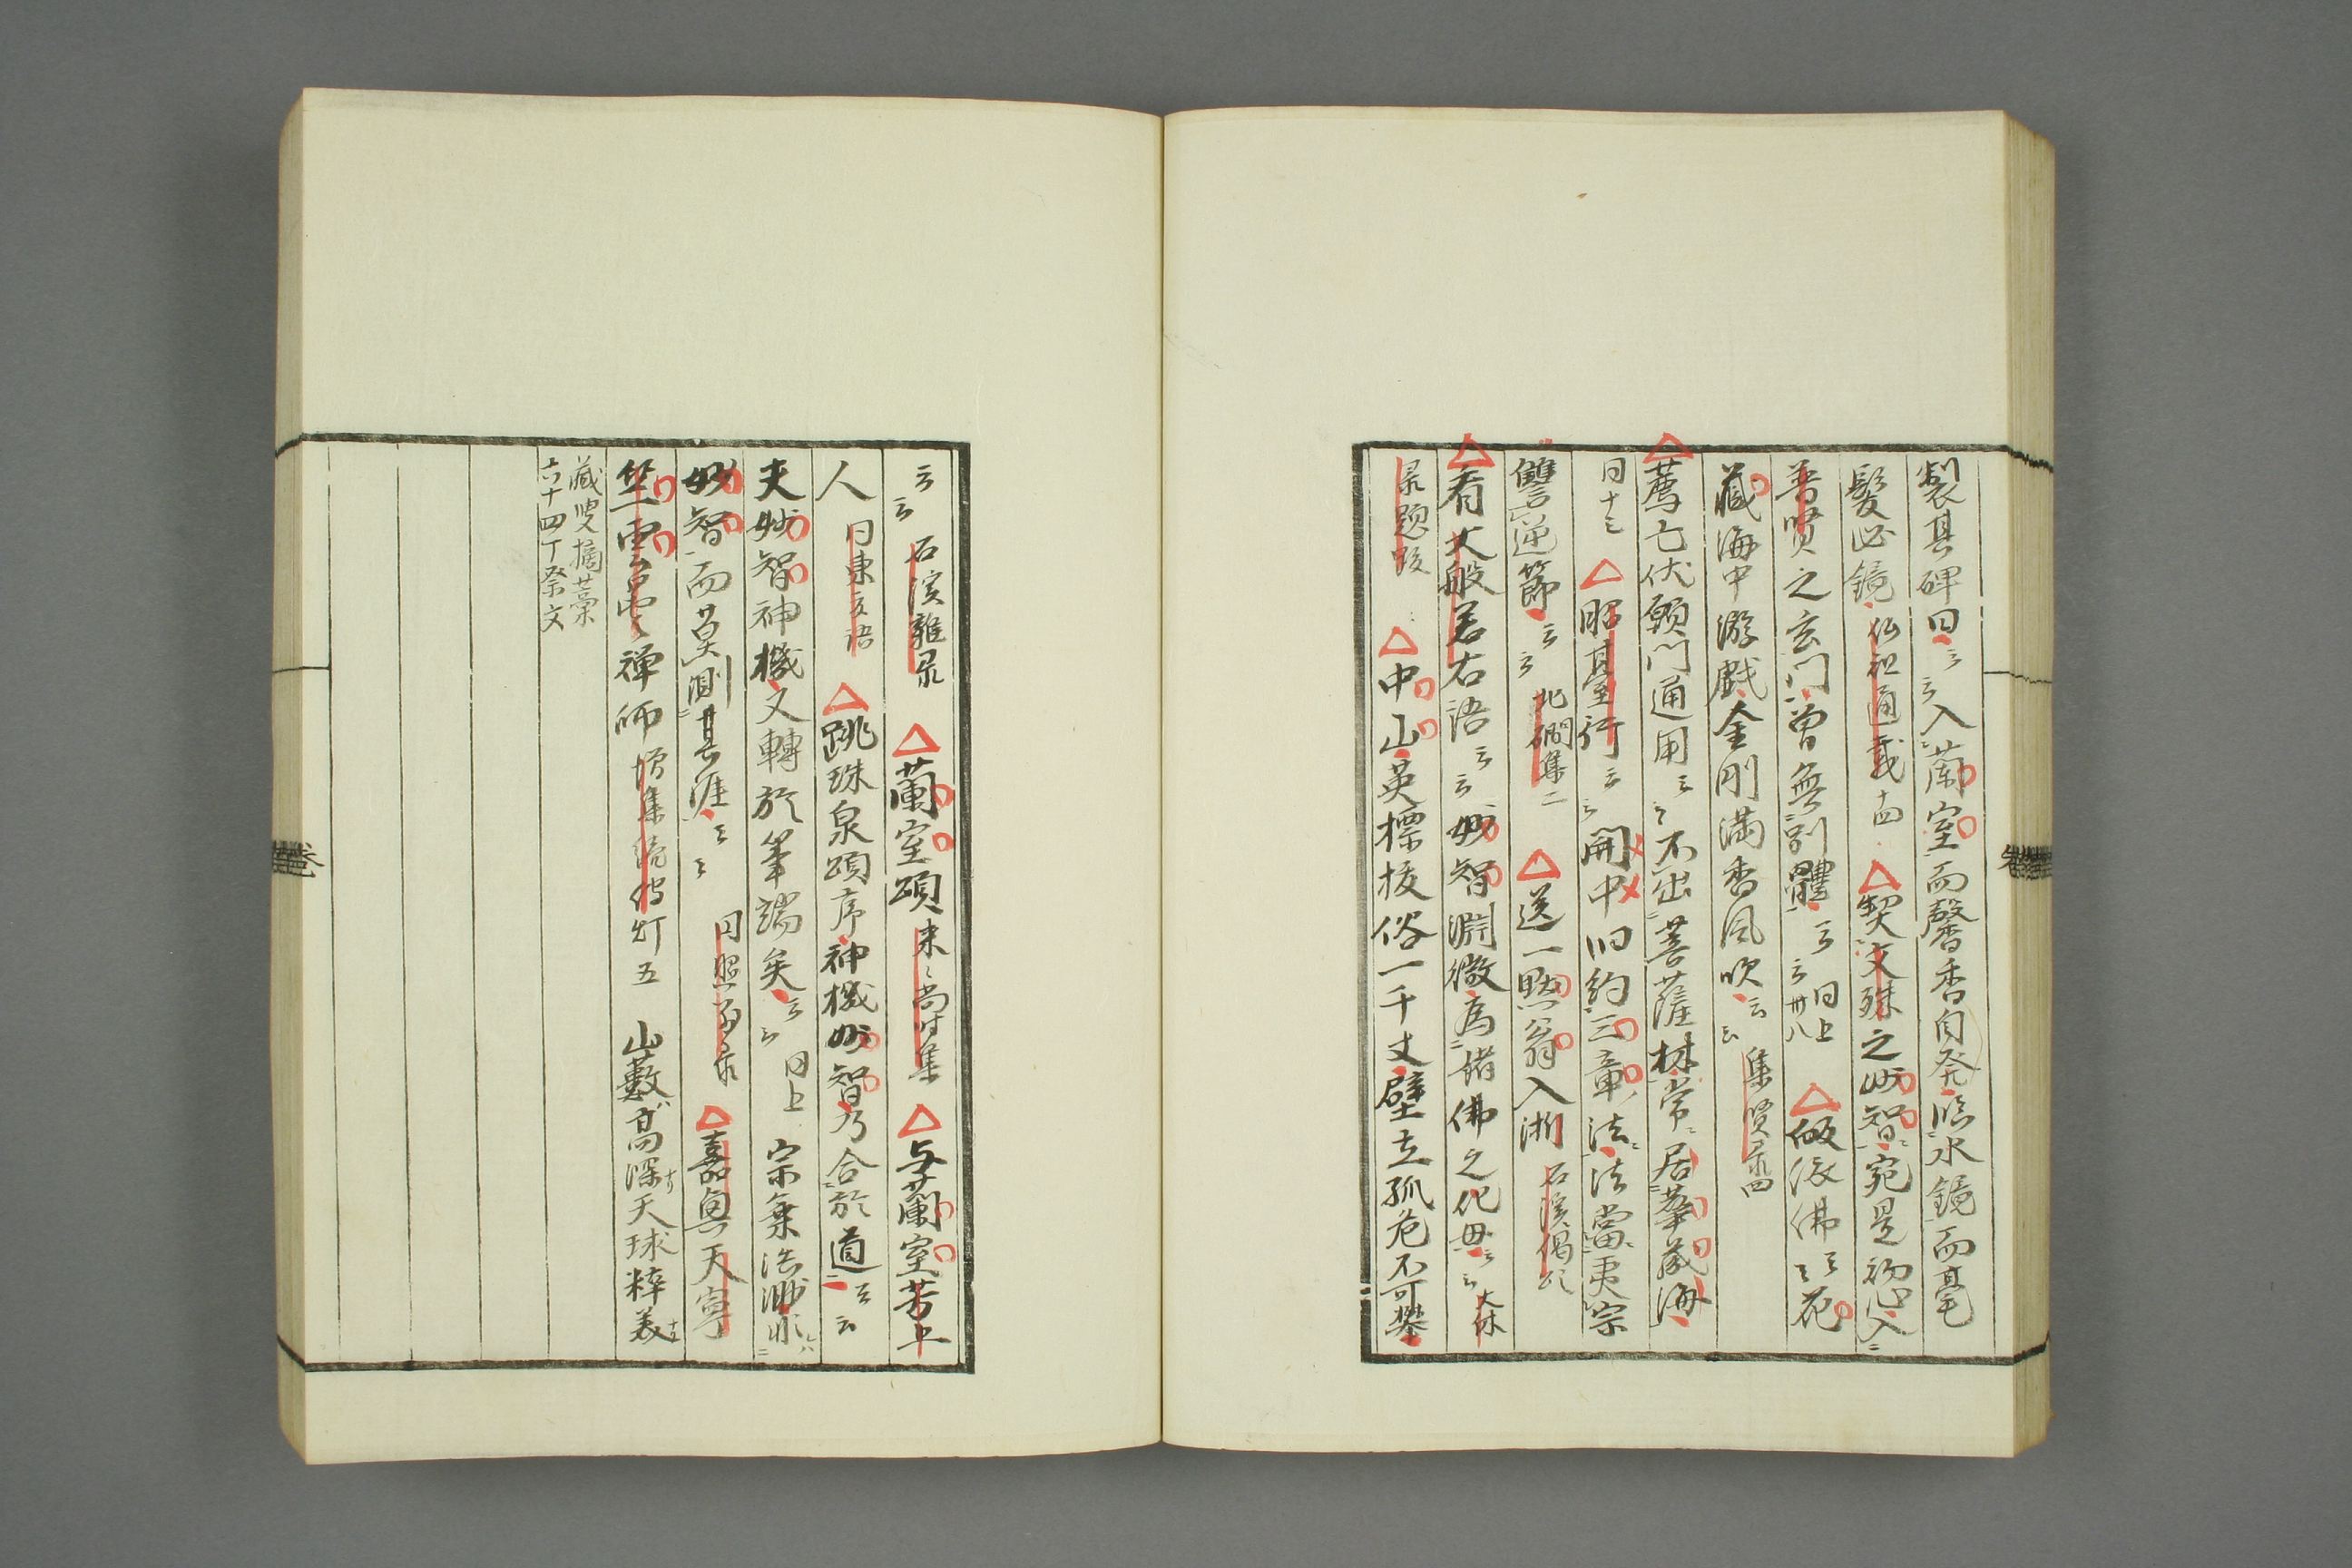 製其碑曰云云入蘭室而馨香自発臨水鏡而毫
髮必鏡仏祖通載十四 契文殊之妙智宛是初心入
普賢之玄門曽無別體云云同上卅八 倣浴佛云云花
藏海中游戯金剛満香風吹云云集賢录四
薦亡伏願門通用云云不出菩薩林常居華蔵海
同十三 昭基至行云云開中旧約三章法法當夷宗
讐逆節云云北磵集二 送一默翁入淅石渓偈
看大般若右語云云妙智淵微為諸佛之化毋云云大休
录題跋 中山英標抜俗一千丈壁立孤危不可攀
云云石渓雜录 蘭室頌來々尚时集 与蘭室芳上
人同東文語 跳珠泉頌序神機妙智乃合於道云云
夫妙智神機又轉於筆端矣云云同上 宗乗浩渺
妙智而莫測其涯云云円照录 嘉興天寧
竺雲曇禅師増集続傳灯五 山藪高深天球粹美
藏叟摘藁
六十四丁祭文
巻